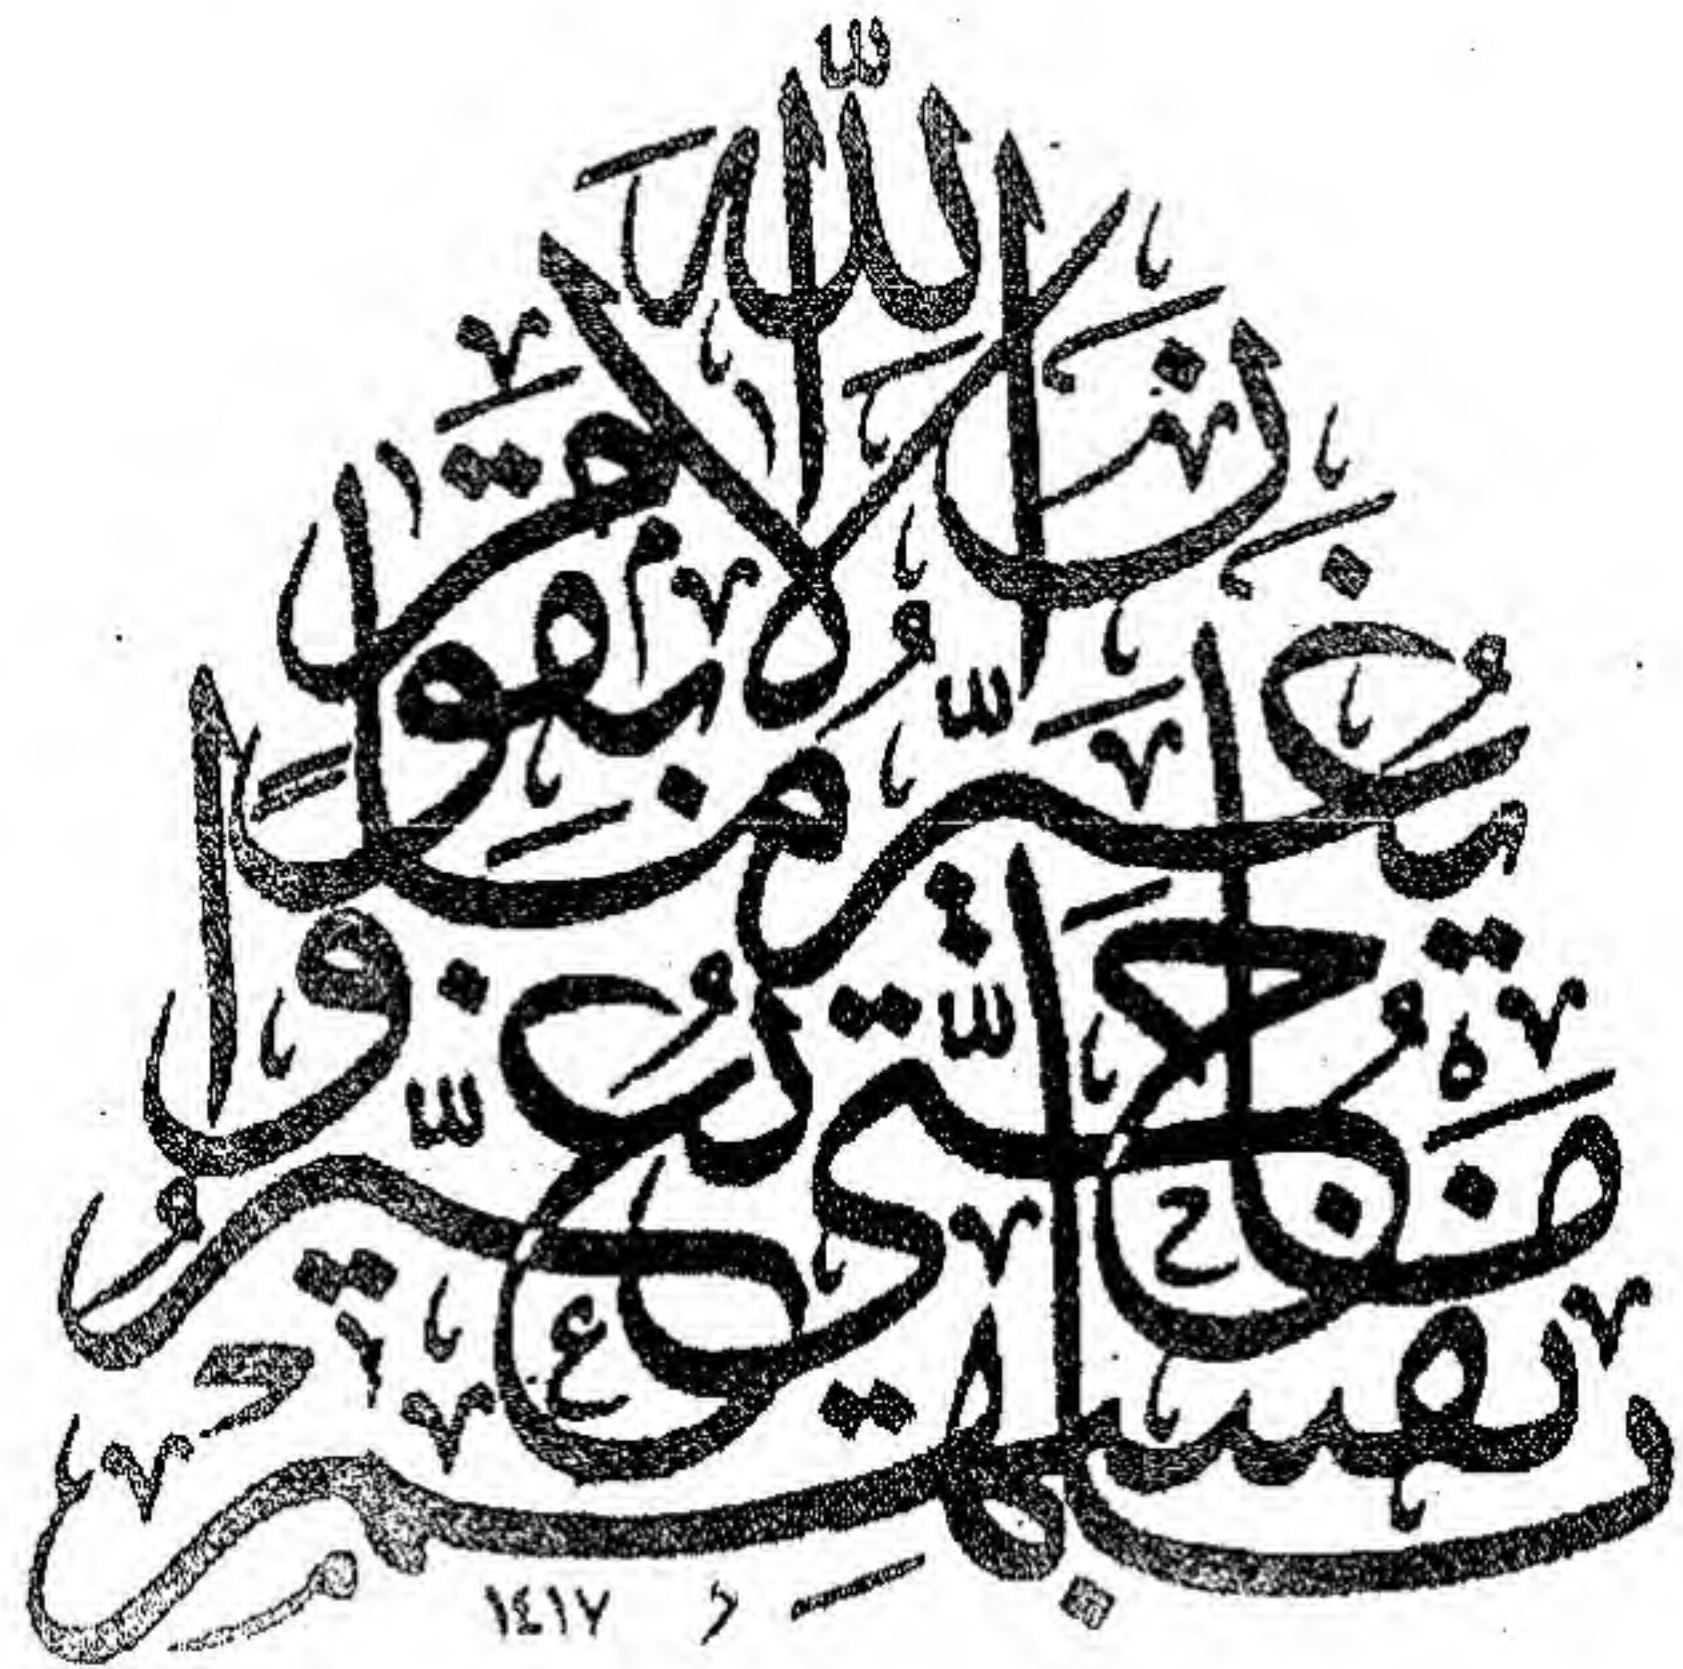 إِنَّ اللَّهَ لَا يُغَيِّرُ مَا بِقَوْمٍ حَتَّىٰ يُغَيِّرُوا مَا بِأَنْفُسِهِمْ
١٤١٧